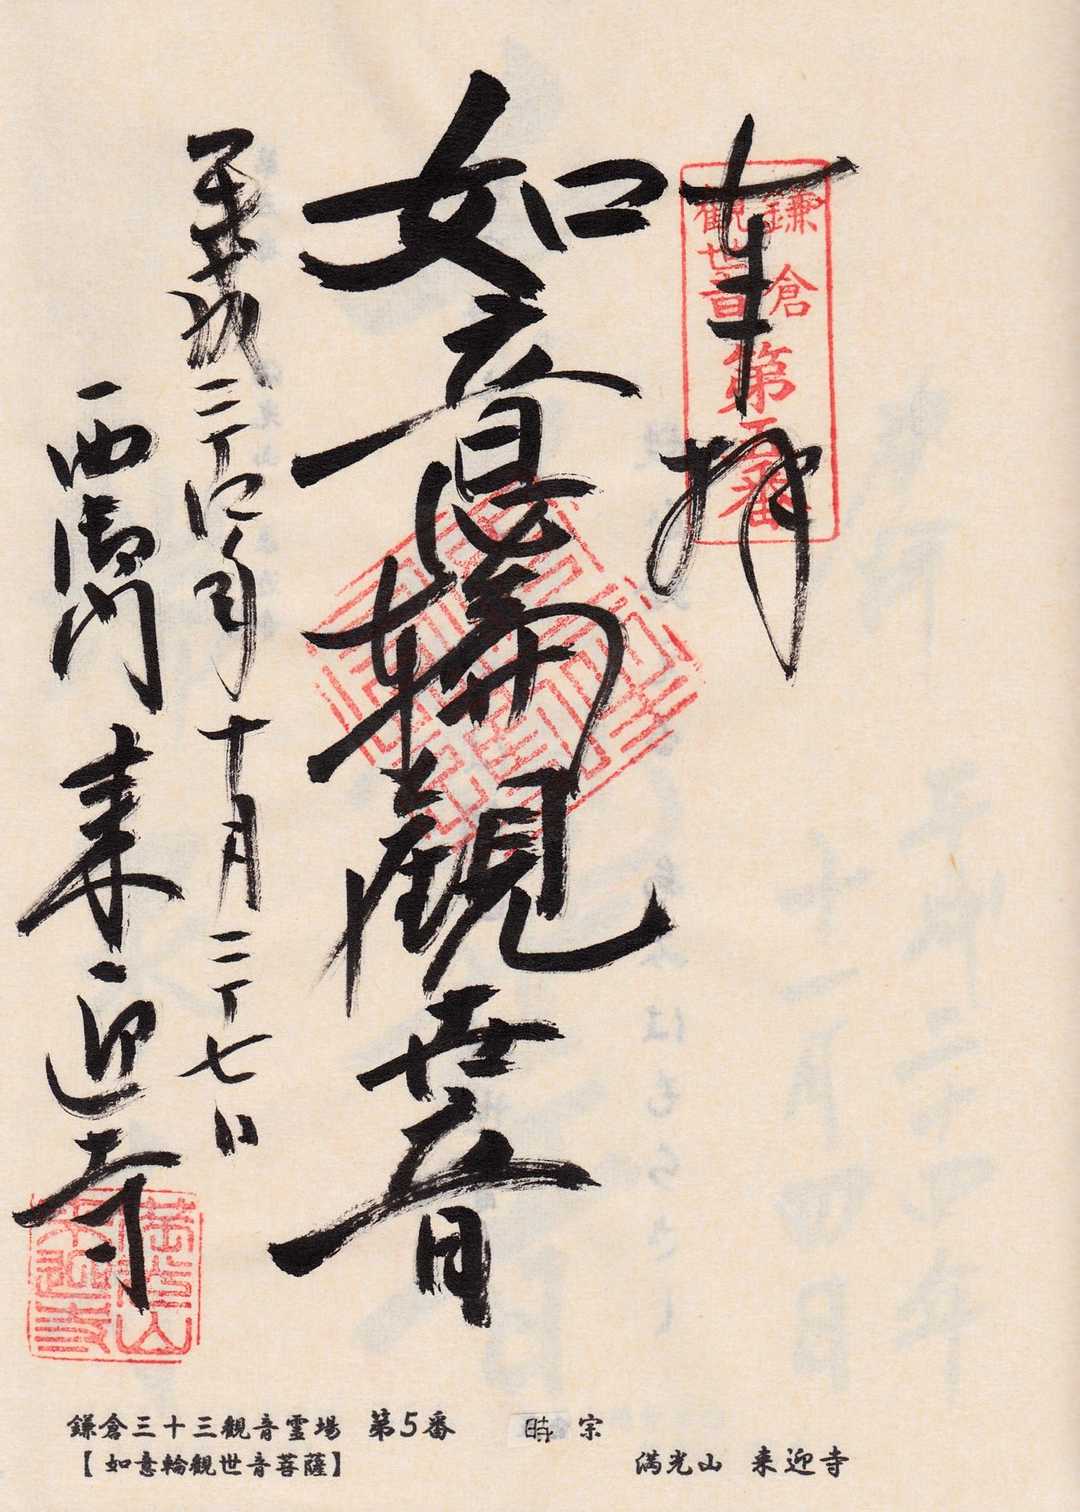 奉拝
鎌倉
観世音
第五番
如意輪観世音
平成二十四年十月二十七日
西御門 来迎寺
満光山
来迎寺
鎌倉三十三観音霊場 第5番
時宗
【如意輪観世音菩薩】
満光山 来迎寺